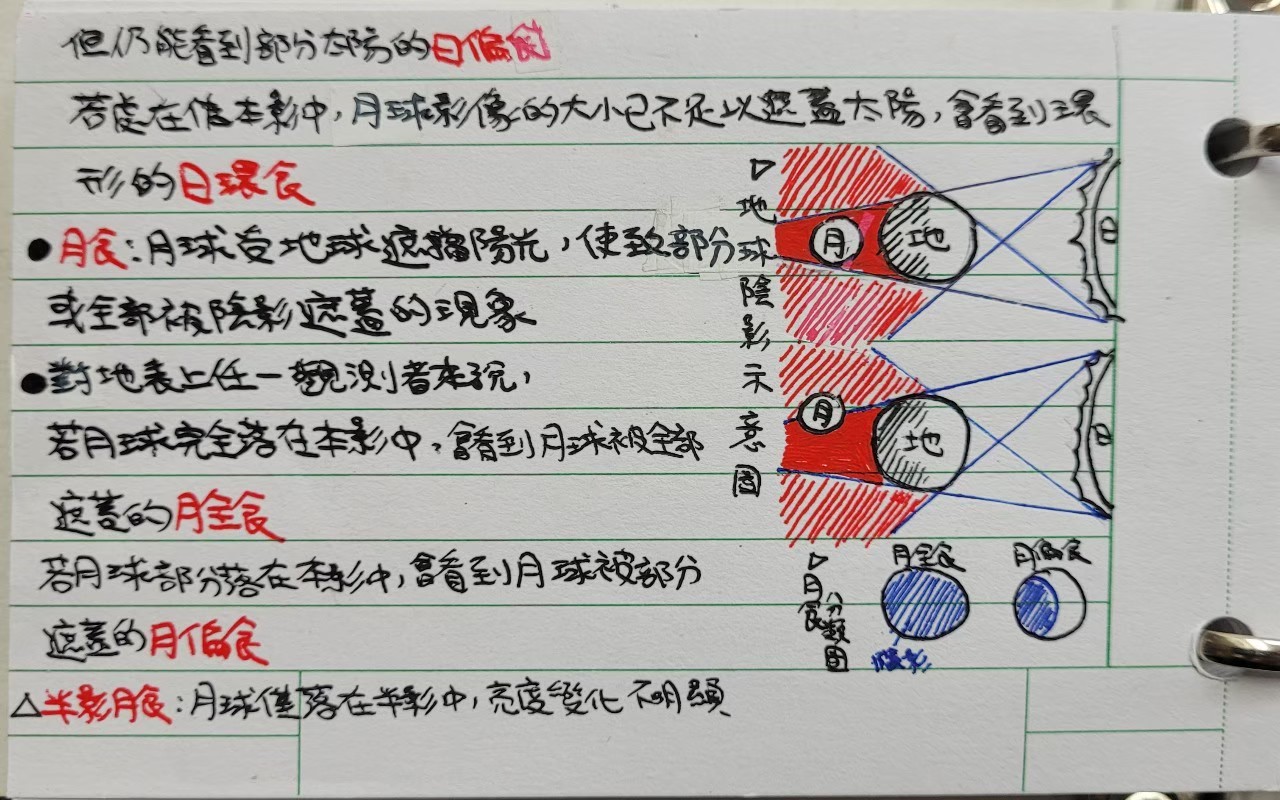 但仍能看到部分太陽的日偏食
若處在偽本影中,月球影像的大小已不足以遮蓋太陽,會看到環
形的日環食
●月食:月球受地球遮擋陽光,使致部分
或全部被陰影遮蓋的現象
●對地表上任一觀測者來說,
若月球完全落在本影中,會看到月球被全部
遮蓋的月全食
若月球部分落在本影中,會看到月球被部分
遮蓋的月偏食
△半影月食:月球僅落在半影中,亮度變化不明顯
▷地球陰影示意圖
月
地
日
月
地
日
▷月食分類圖
月全食
月偏食
陰影